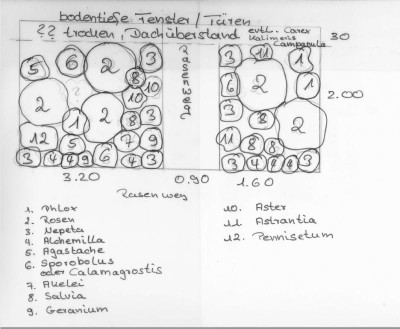 bodentiefe Fenster / Türen
?? trocken, Dachüberstand evtl. Carex
Kalimeris
Campanula
30
5 6 2 3
8 10
2 10
1 2 8 3
12 5 7 9
3 4 4 9 6 4 3
Rasenweg
3 11 1
6 2 1
3 8 2
11 8 8
3 4 4 4 3
2.00
3.20
0.90
1.60
Rasenweg
1. Phlox
2. Rosen
3. Nepeta
4. Alchemilla
5. Agastache
6. Sporobolus
oder Calamagrostis
7. Akelei
8. Salvia
9. Geranium
10. Aster
11. Astrantia
12. Pennisetum